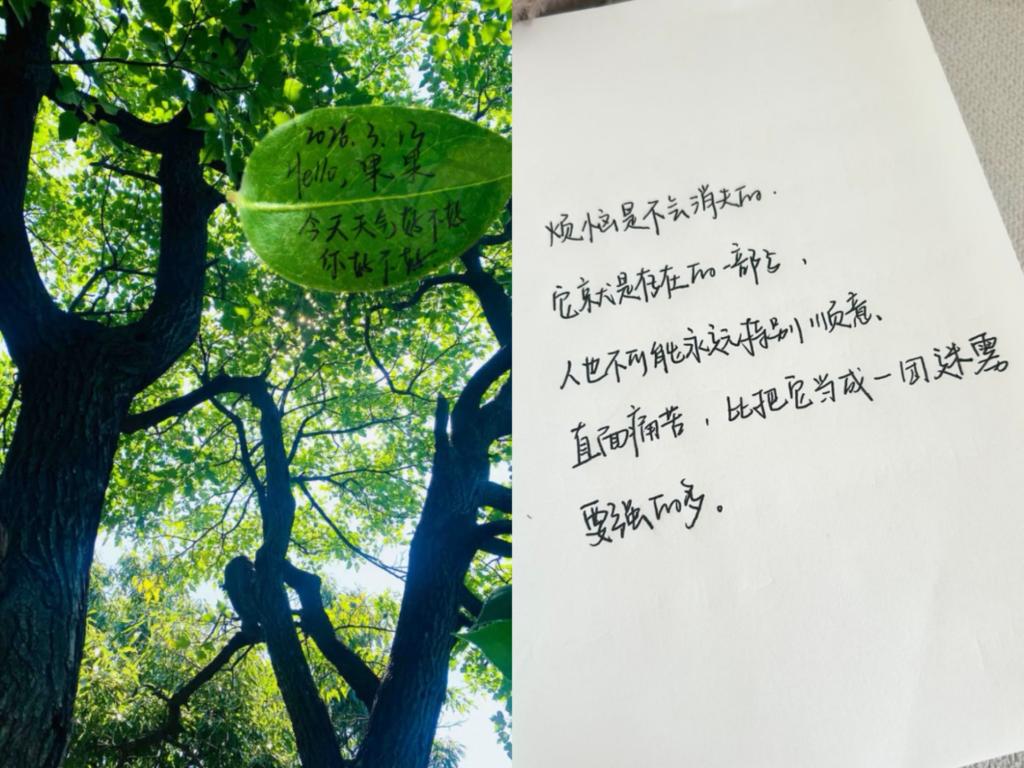 2026.3.13
Hello, 果果
今天天气好不好
你好不好
烦恼是不会消失的.
它就是存在的一部分,
人也不可能永远特别顺意、
直面痛苦,比把它当成一团迷雾
要强的多。